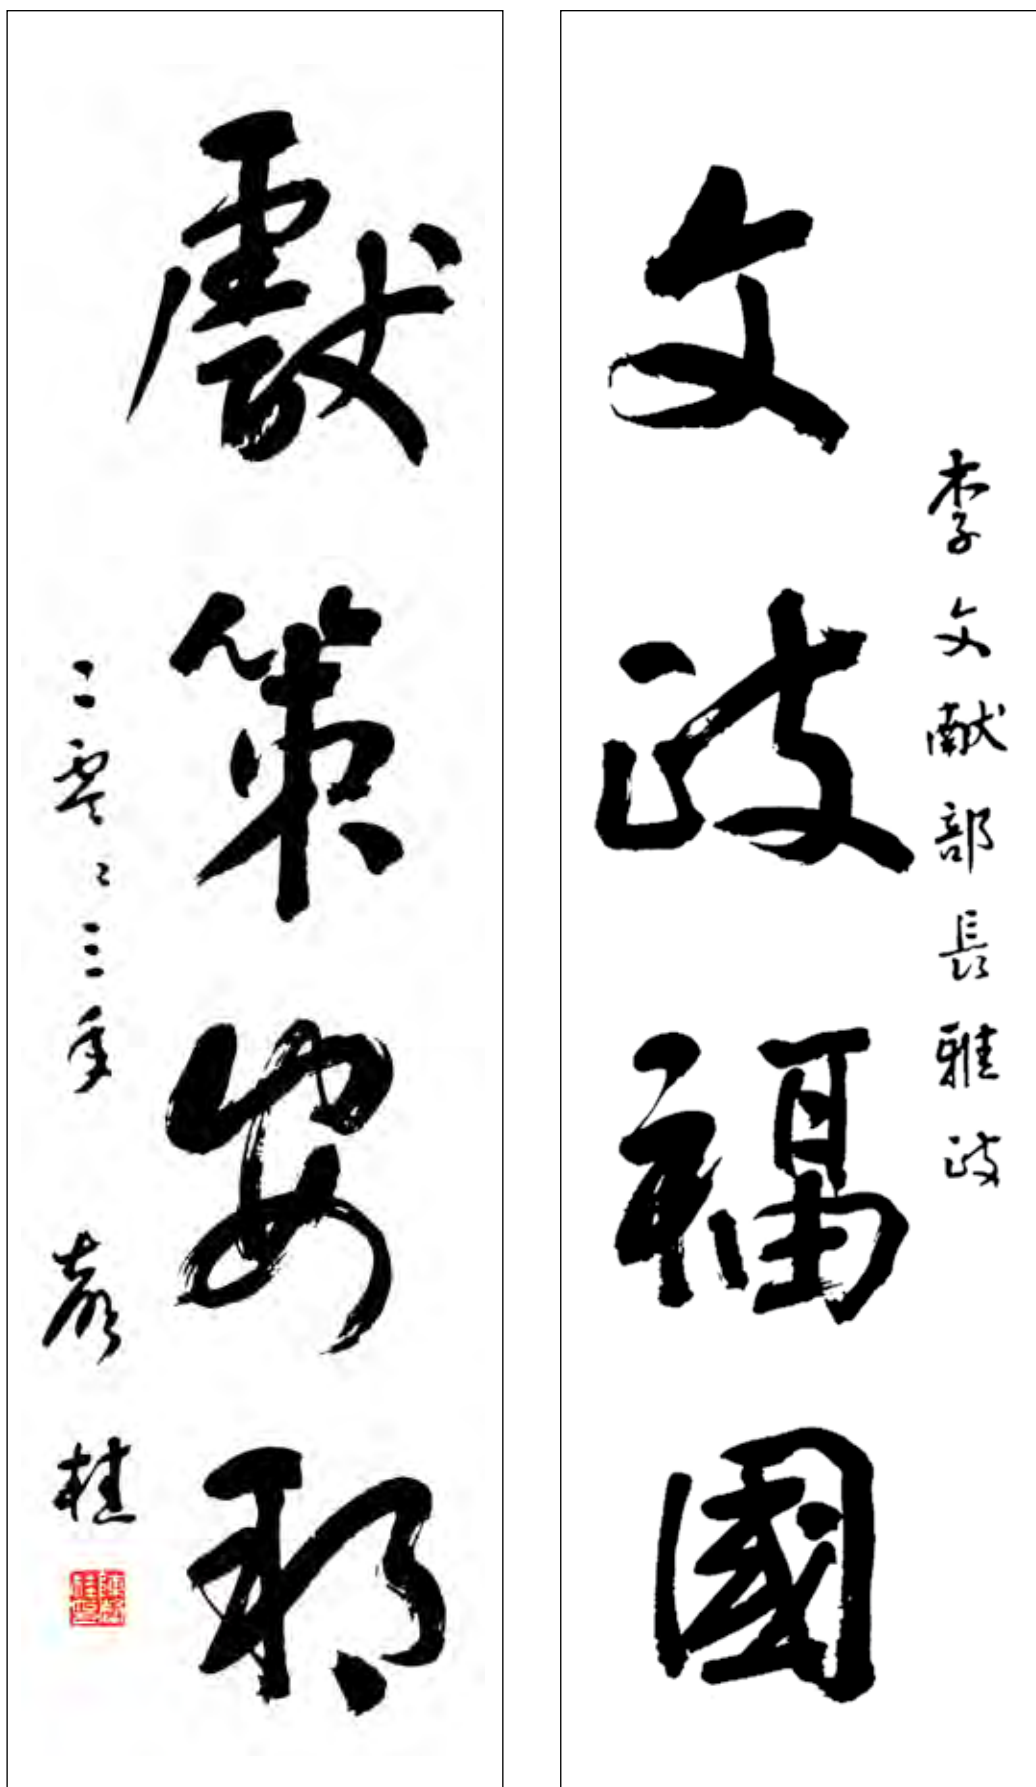 李文献部長雅政
文政福國
獻策安邦
二零二三年 桂